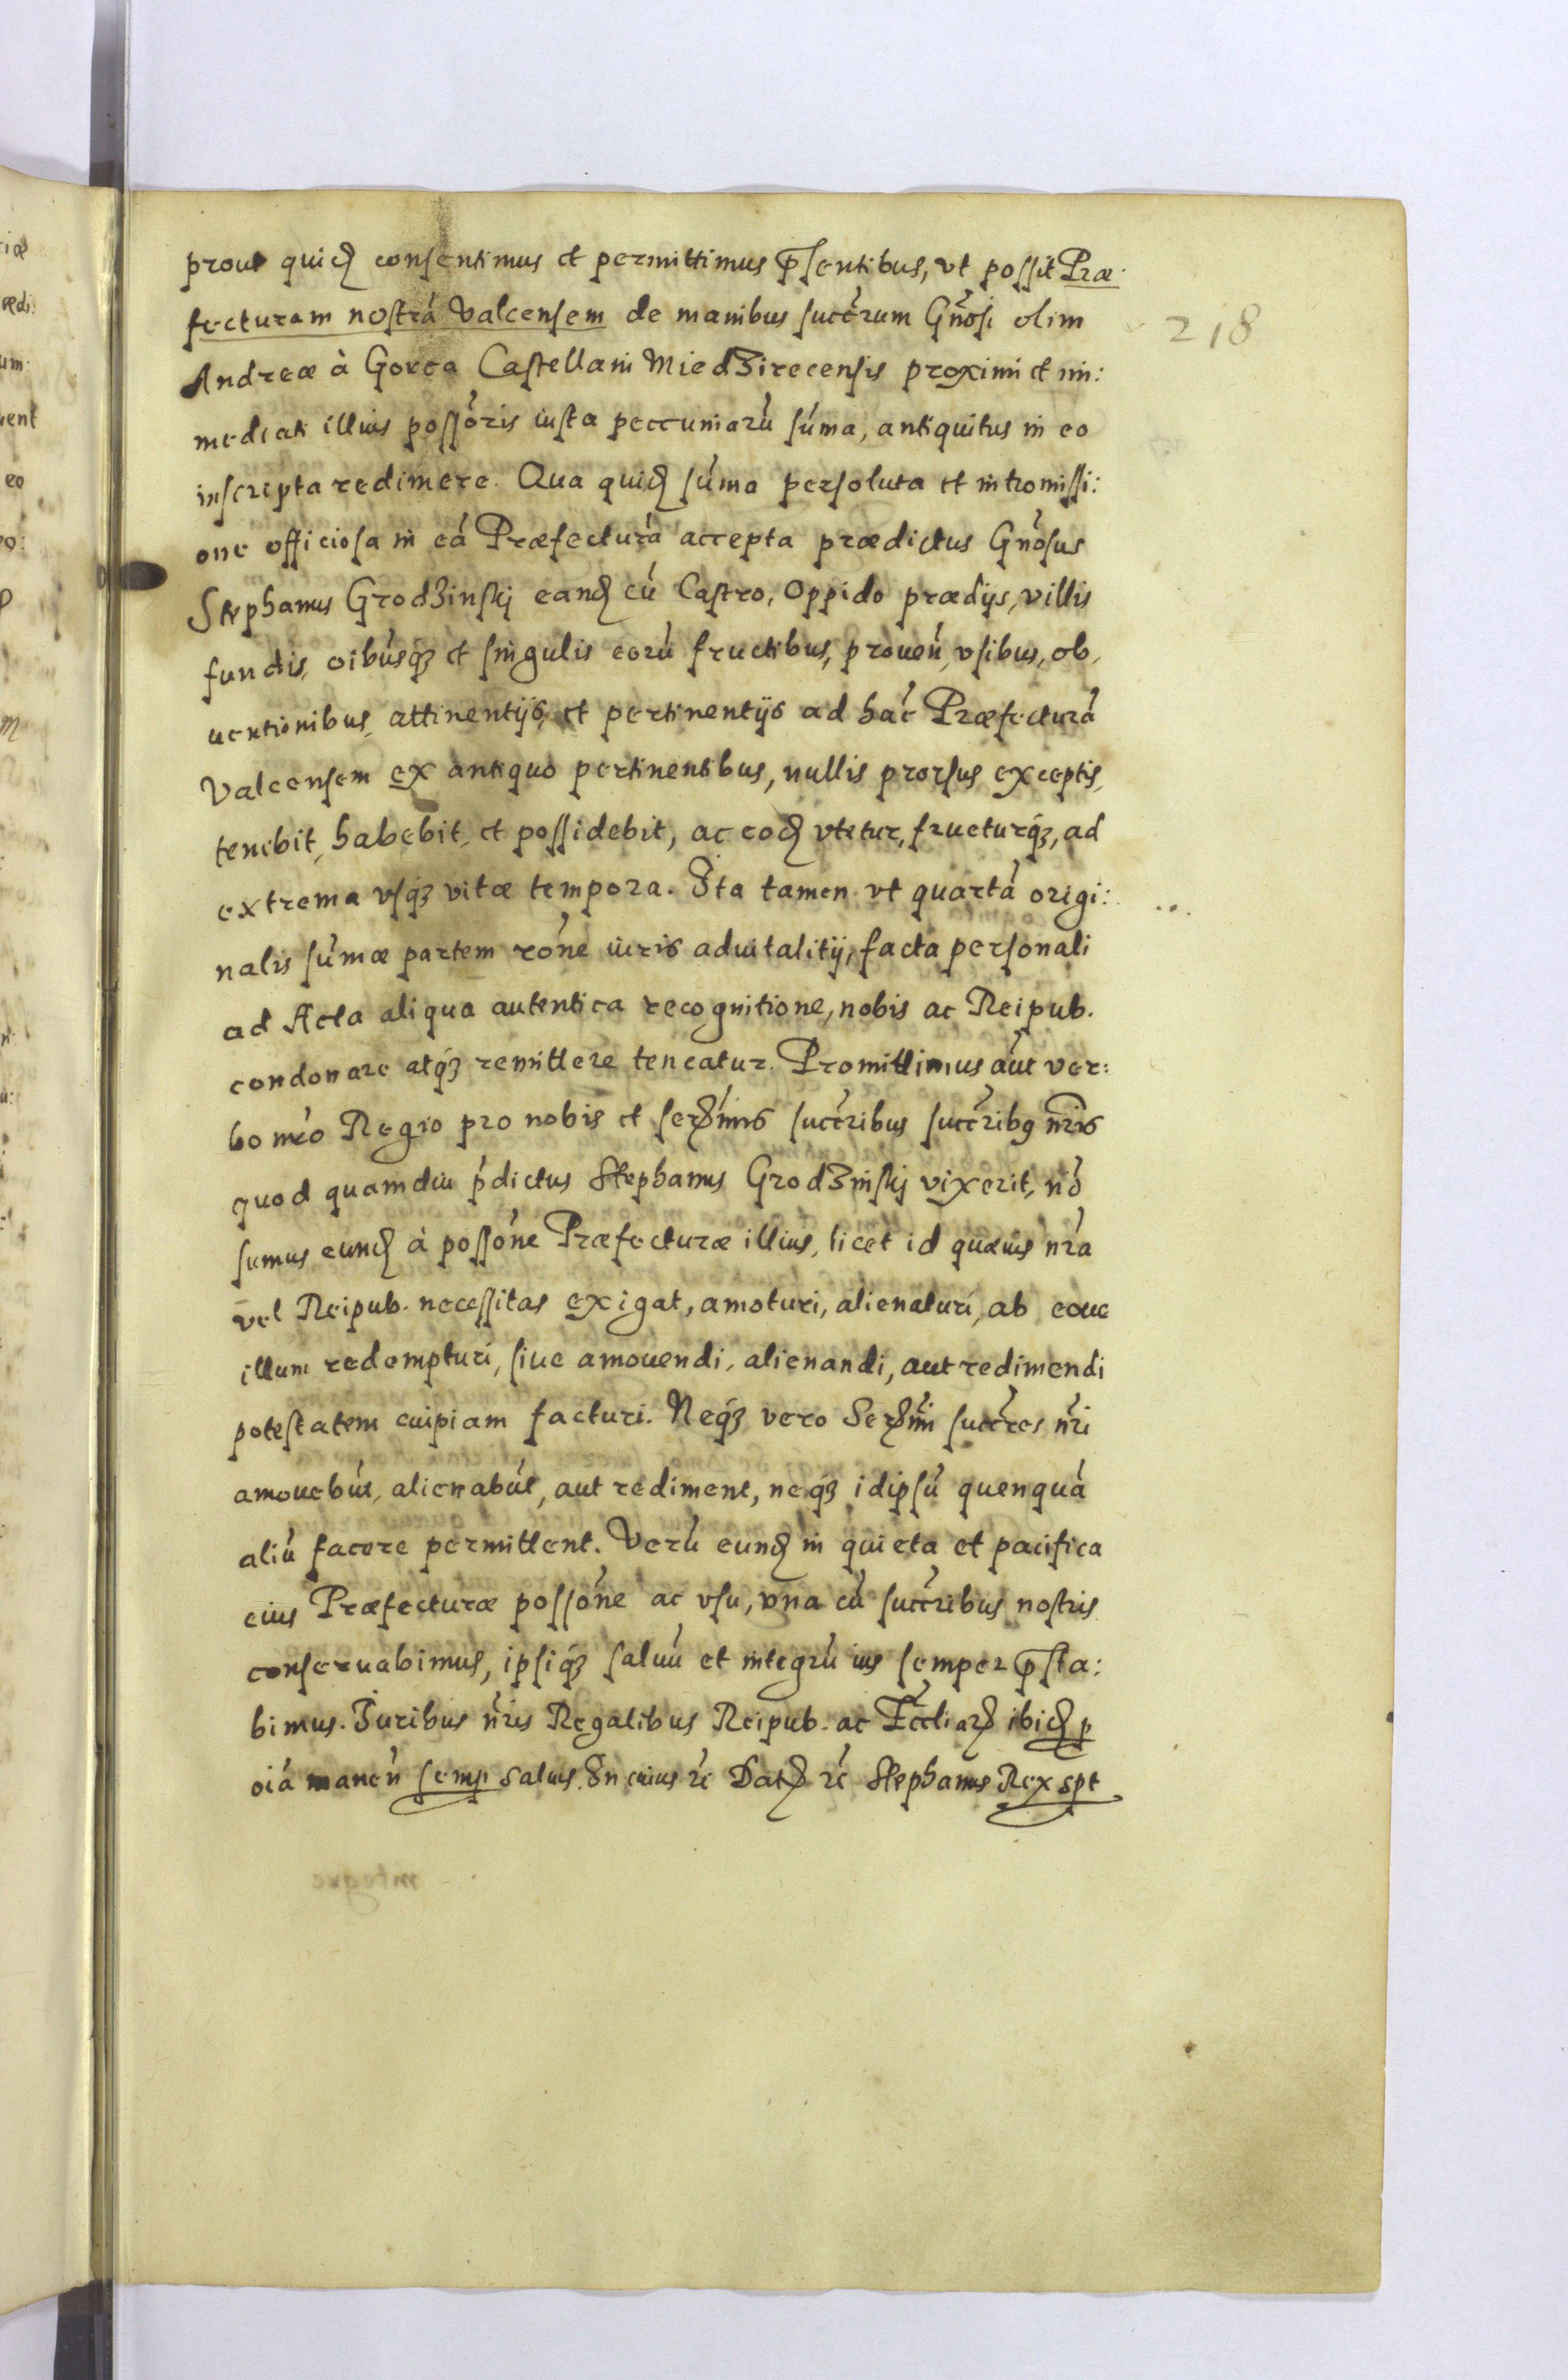 prout quidẽ consentimus et permittimus p̃sentibus, vt possit Præ-
fecturam nostrá Valcensem de manibus succrum Gnõsi olim
218
Andreæ à Gorca Castellani Miedzirecensis proximi et im:
mediati illius possóris iusta peccuniarú súma, antiquitus in eo
inscripta redimere. Qua quidẽ súma persoluta et intromissi:
one officiosa in eá Præfecturá accepta prædictus Gnõsus
Stephanus Grodzinskj eandẽ cú Castro, Oppido prædijs, villis
fundis, oibúsq́3 et singulis eorú fructibus, prouen̛, vsibus, ob,
uentionibus, attinentijs, et pertinentijs ad hác Præfecturá
Valcensem ex antiquo pertinentibus, nullis prorsus exceptis,
tenebit, habebit, et possidebit, ac eodẽ vtetur, frueturq́3, ad
extrema vsq́3 vitæ tempora. Ita tamen vt quartá origi:
nalis súmæ partem róne iuris aduitalitij, facta personali
ad Acta aliqua autentica recognitione, nobis ac Reipub.
condonare atq́3 remittere teneatur. Promittimus aút ver:
bo nr̃o Regio pro nobis et serẽmis succr̃ibus succr̃ibq nr̃is
quod quamdiu p̛dictus Stephanus Grodzinskj vixerit, nõ
sumus eundẽ à possóne Præfecturæ illius, licet id quæuis nr̃a
vel Reipub. necessitas exigat, amoturi, alienaturi, ab eoue
illum redempturi, siue amouendi, alienandi, aut redimendi
potestatem cuipiam facturi. Neq́3 vero Serẽmi succr̃es nr̃i
amouebút, alienabút, aut rediment, neq́3 idipsú quenquá
aliú facere permittent. Verú eundẽ in quieta et pacifica
eius Præfecturæ possóne ac vsu, vna cú succr̃ibus nostris
conseruabimus, ipsiq́3 saluú et integrú ius semper p̃sta:
bimus. Iuribus nr̃is Regalibus Reipub. ac Eccliarẽ ibidẽ p
oiá manen̛ semp saluis. In cuius rẽ Datẽ rẽ Stephanus Rex spt